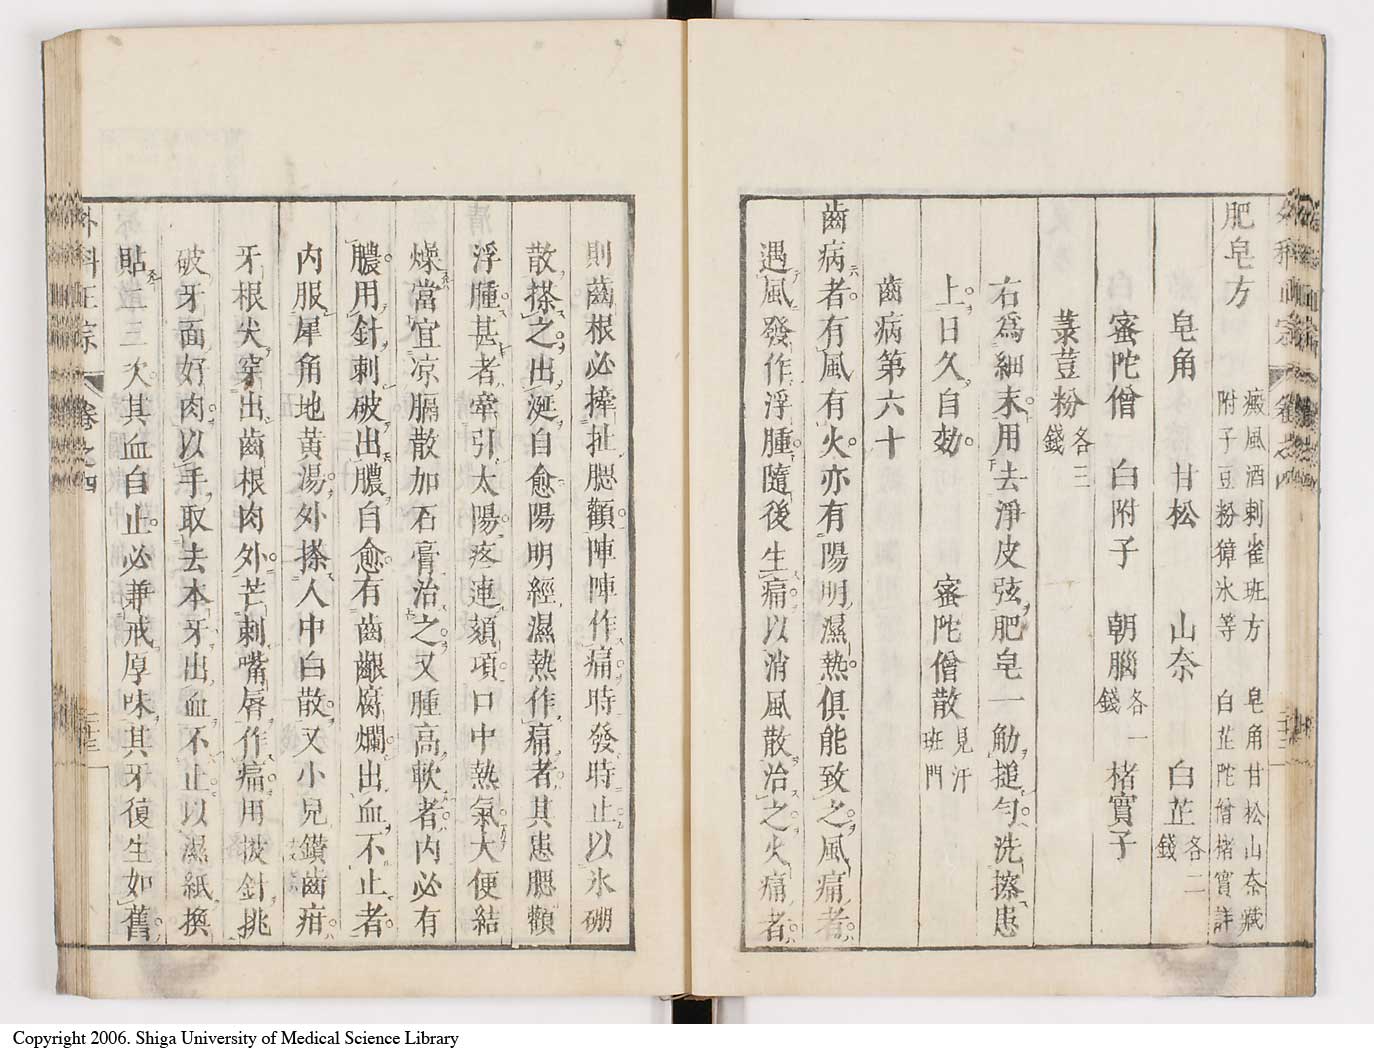 肥皂方
癜風酒刺雀班方　皂角甘松山奈藏
附子豆粉獐氷等　白芷陀僧楮實詳
皂角　甘松　山奈　白芷各二錢
蜜陀僧　白附子　朝腦各一錢　楮實子
菉荳粉各三錢
右爲細末用去淨皮弦肥皂一觔搥勻洗擦患
上日久自効　蜜陀僧散見汗班門
齒病第六十
齒病者有風有火亦有陽明濕熱俱能致之風痛者
遇風發作浮腫隨後生痛以消風散治之火痛者
則齒根必摔扯腮顴陣陣作痛時發時止以氷硼
散搽之出涎自愈陽明經濕熱作痛者其患腮顴
浮腫甚者牽引太陽疼連頦項口中熱氣大便結
燥當宜凉膈散加石膏治之又腫高軟者内必有
膿用針刺破出膿自愈有齒齦腐爛出血不止者
内服犀角地黃湯外搽人中白散又小兒鑽齒疳
牙根尖穿出齒根肉外芒刺嘴唇作痛用披針挑
破牙面好肉以手取去本牙出血不止以濕紙換
貼二三次其血自止必兼戒厚味其牙復生如舊
外科正宗　卷之四
Copyright 2006. Shiga University of Medical Science Library